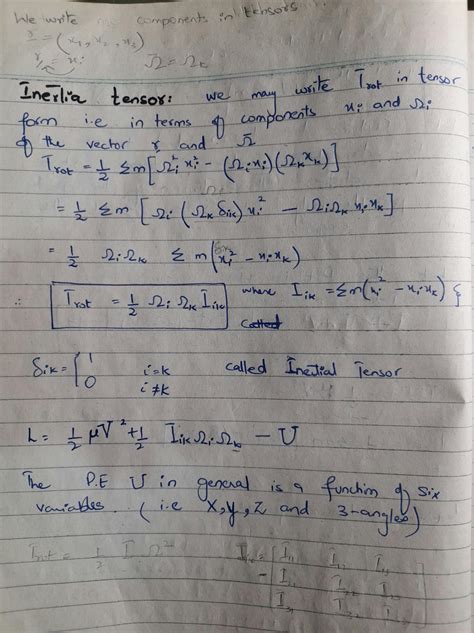 We write components in tensors
r = (x₁, x₂, x₃)
r = xᵢ    Ω = Ωₖ
Inertia tensor: we may write T_rot in tensor
form i.e in terms of components xᵢ and Ωᵢ
of the vector r and Ω̄
T_rot = 1/2 Σm[Ωᵢ² xᵢ² - (Ωᵢxᵢ)(Ωₖxₖ)]
= 1/2 Σm [Ωᵢ(Ωₖ δᵢₖ)xᵢ² - ΩᵢΩₖ xᵢxₖ]
= 1/2 ΩᵢΩₖ Σ m(xᵢ² - xᵢxₖ)
∴ T_rot = 1/2 Ωᵢ Ωₖ Iᵢₖ where Iᵢₖ = Σm(xᵢ² - xᵢxₖ) {
Called
δᵢₖ = { 1 i=k called Inertial Tensor
0 i≠k
L = 1/2 μV² + 1/2 Iᵢₖ Ωᵢ Ωₖ - U
The P.E U in general is a function of six
variables. (i.e X,Y,Z and 3-angles)
= 1/2 I Ω²